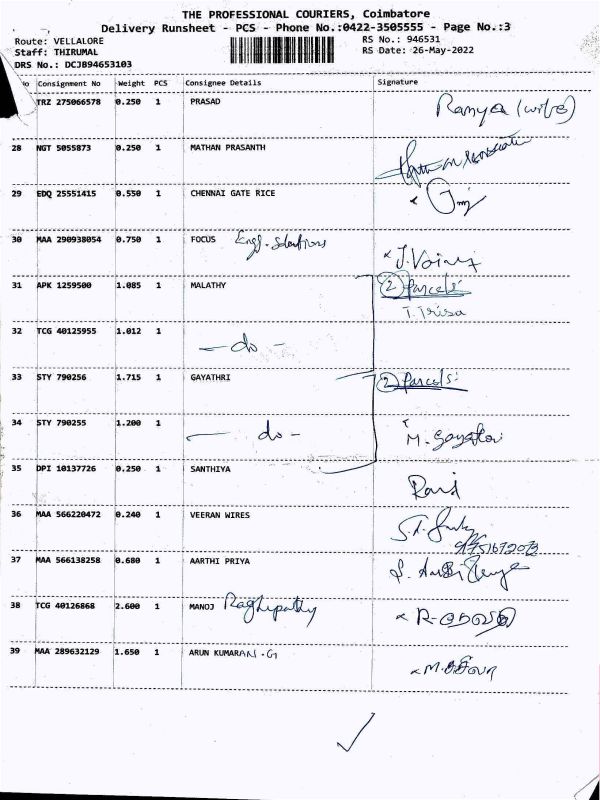 THE PROFESSIONAL COURIERS, Coimbatore
Delivery Runsheet - PCS - Phone No.:0422-3505555 - Page No.:3
Route: VELLALORE RS No.: 946531
Staff: THIRUMAL RS Date: 26-May-2022
DRS No.: DCJ894653103
No Consignment No Weight PCS Consignee Details Signature
TRZ 275066578 0.250 1 PRASAD Ramya (wife)
28 NGT 5055873 0.250 1 MATHAN PRASANTH
29 EDQ 25551415 0.550 1 CHENNAI GATE RICE
30 MAA 290938054 0.750 1 FOCUS Engg. Solutions
31 APK 1259500 1.085 1 MALATHY (2) Parcels:
T. Trisa
32 TCG 40125955 1.012 1 - do -
33 STY 790256 1.715 1 GAYATHRI (2) Parcels:
34 STY 790255 1.200 1 - do - M. Gayathri
35 DPI 10137726 0.250 1 SANTHIYA
36 MAA 566220472 0.240 1 VEERAN WIRES
37 MAA 566138258 0.680 1 AARTHI PRIYA
38 TCG 40126868 2.600 1 MANOJ Raghupathy
39 MAA 289632129 1.650 1 ARUN KUMARAN.G